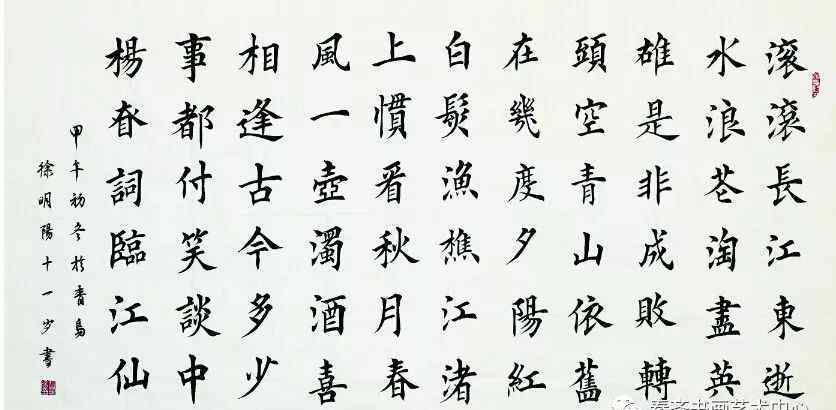 滚滚長江東逝
水浪花淘盡英
雄是非成敗轉
頭空青山依舊
在幾度夕陽紅
白髮漁樵江渚
上慣看秋月春
風一壺濁酒喜
相逢古今多少
事都付笑談中
楊昚詞臨江仙
甲午初冬於青島
徐明陽十一岁書
书画艺术中心